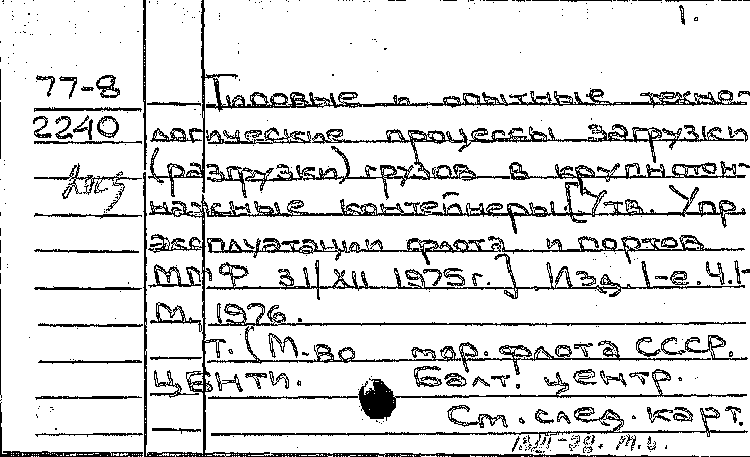 1.
77-8 Типовые и опытные техно-
2240 логические процессы загрузки
(разгрузки) грузов в крупнотон-
нажные контейнеры [Утв. Упр.
эксплуатации флота и портов
ММФ 31/XII 1975г.]. Изд. 1-е. Ч.1-
М. 1976.
Т. (М-во мор. флота СССР.
ЦБНТИ. Балт. центр.
См. след. карт.